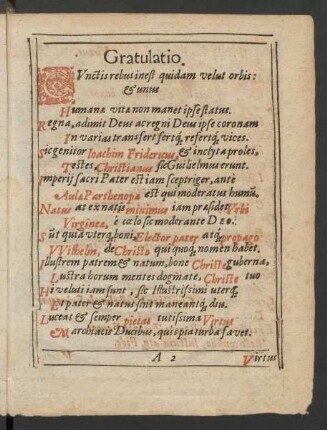 Gratulatio.
CVnctis rebus inest quidam velut orbis:
& unus
Humanæ vitæ non manet ipse status.
Regna, adimit Deus ac regni Deus ipse coronam
In varias transfert fertq́, refertq́, vices.
Sic genitor Joachim Fridericus, & inclyta proles,
Testes Christianus sic Guilielmus erunt.
Imperij sacri Pater est iam sceptriger, antè
Aula Parthenopæ est qui moderatus humũ.
Natus at ex natis minimus iam præsidet Vrbi
Virgineæ, è cœlo sic moderante DEO.
ût quia uterq́, boni, Elector pater atq́; propago
VVilhelm, de Christo qui quoq́, nomen habet.
Illustrem patrem & natum, bone Christe guberna,
Lustra horum mentes dogmate, Christe tuo
Hi veluti iam sunt, sic Illustrissimi uterq́,
Et pater & natus sint maneantq́, diu.
Luceat & semper pietas tutissima Virtus
Marchiacis Ducibus, quis pia turba favet.
A 2
Virtus